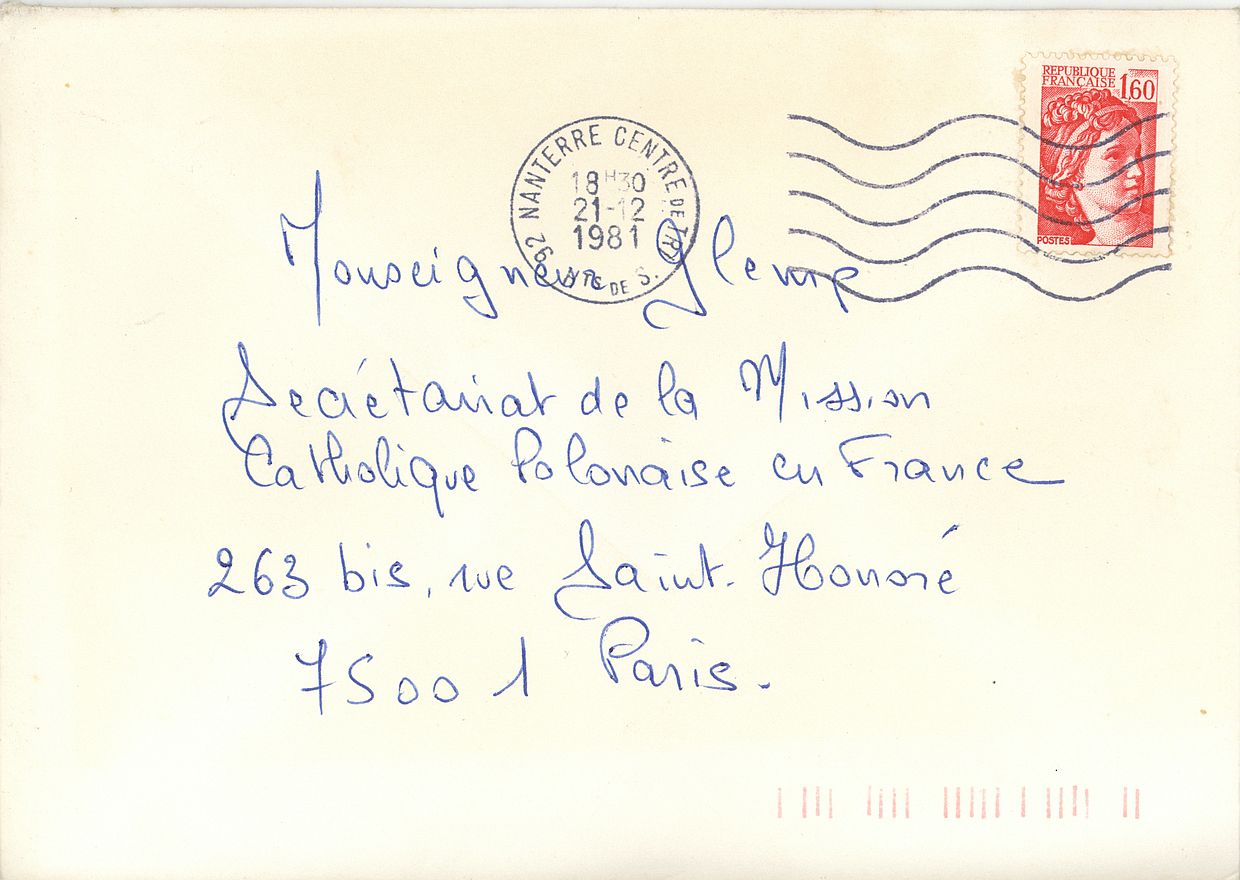 REPUBLIQUE
FRANÇAISE 1,60
POSTES
92 NANTERRE CENTRE DE TRI
18H30
21-12
1981
HTS DE S.
Monseigneur Glemp
Secrétariat de la Mission
Catholique Polonaise en France
263 bis, rue Saint-Honoré
75001 Paris.